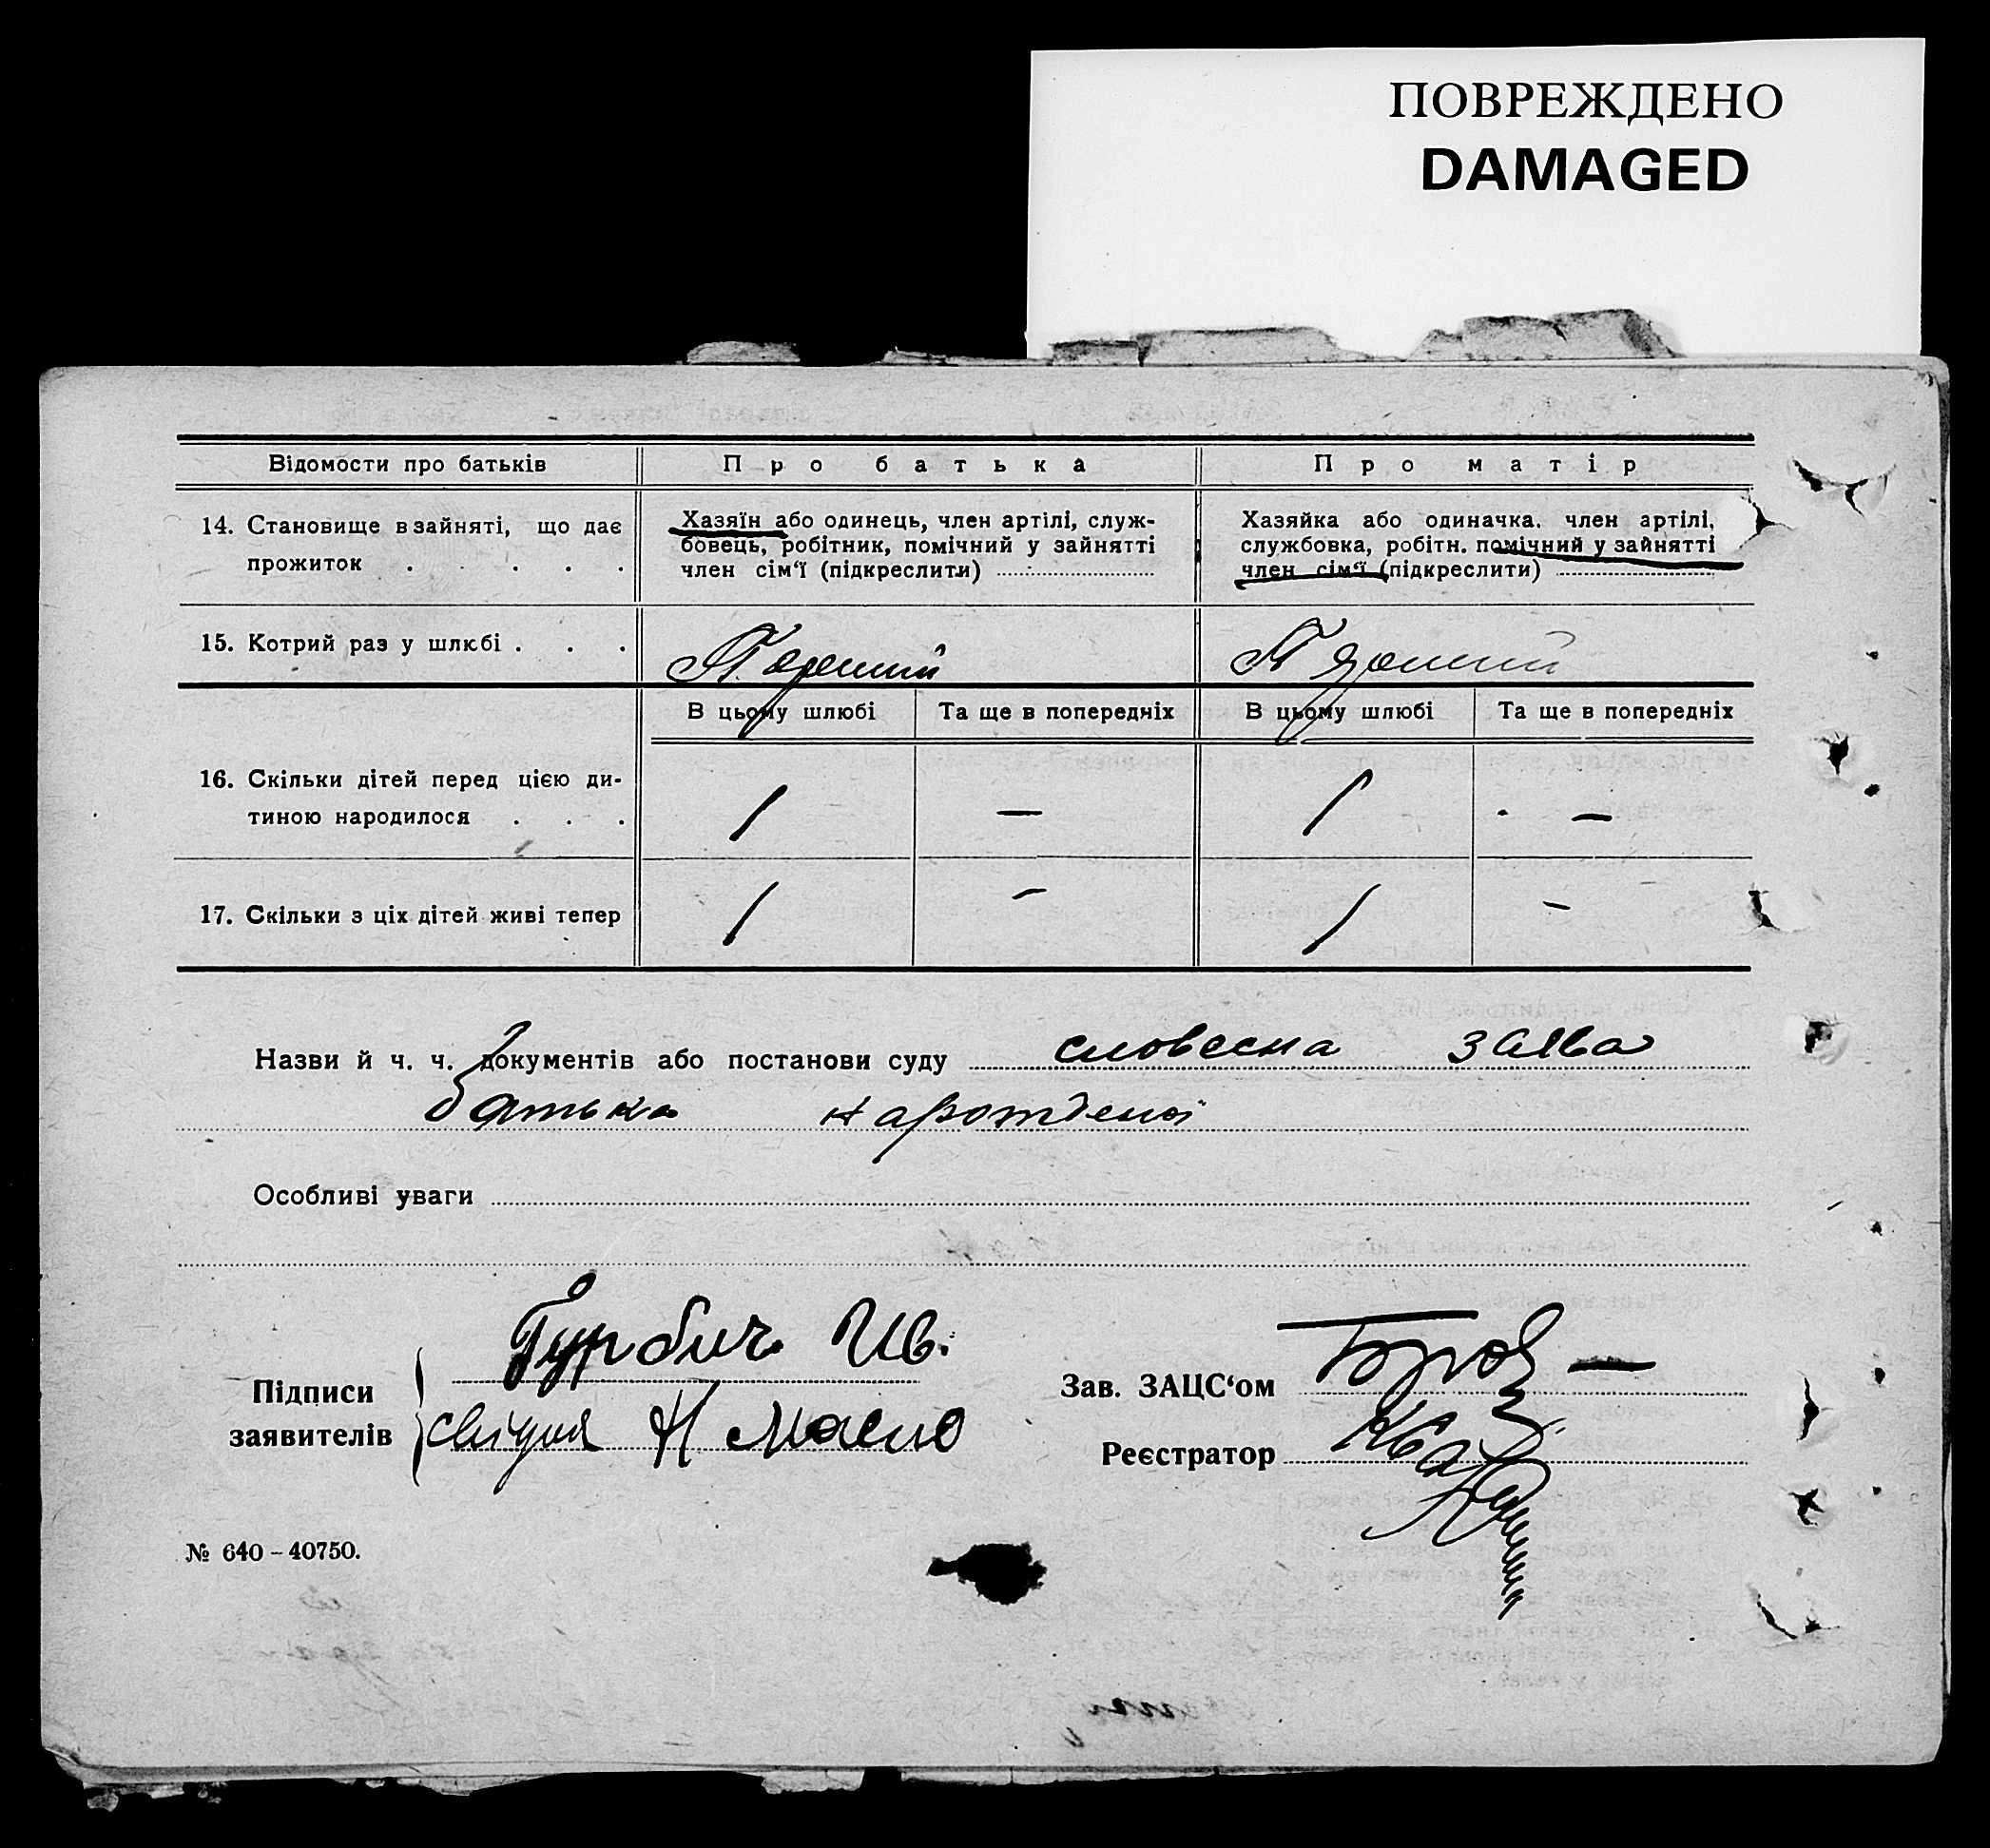 ПОВРЕЖДЕНО
DAMAGED
Відомости про батьків
Про батька
Про матір
14. Становище в зайняті, що дає
прожиток . . . . .
Хазяїн або одинець, член артілі, служ-
бовець, робітник, помічний у зайнятті
член сім‘ї (підкреслити)
Хазяйка або одиначка. член артілі,
службовка, робітн. помічний у зайнятті
член сім‘ї (підкреслити)
15. Котрий раз у шлюбі . . .
В цьому шлюбі
Та ще в попередніх
В цьому шлюбі
Та ще в попередніх
16. Скільки дітей перед цією ди-
тиною народилося . . .
1 — 1 —
17. Скільки з ціх дітей живі тепер
1 – 1 –
Назви й ч. ч. документів або постанови суду словесна заява
батька народженої
Особливі уваги
Гурбич Ив.
Підписи
заявителів
свідия Н Масло
Зав. ЗАЦС‘ом
Реєстратор
№ 640 – 40750.